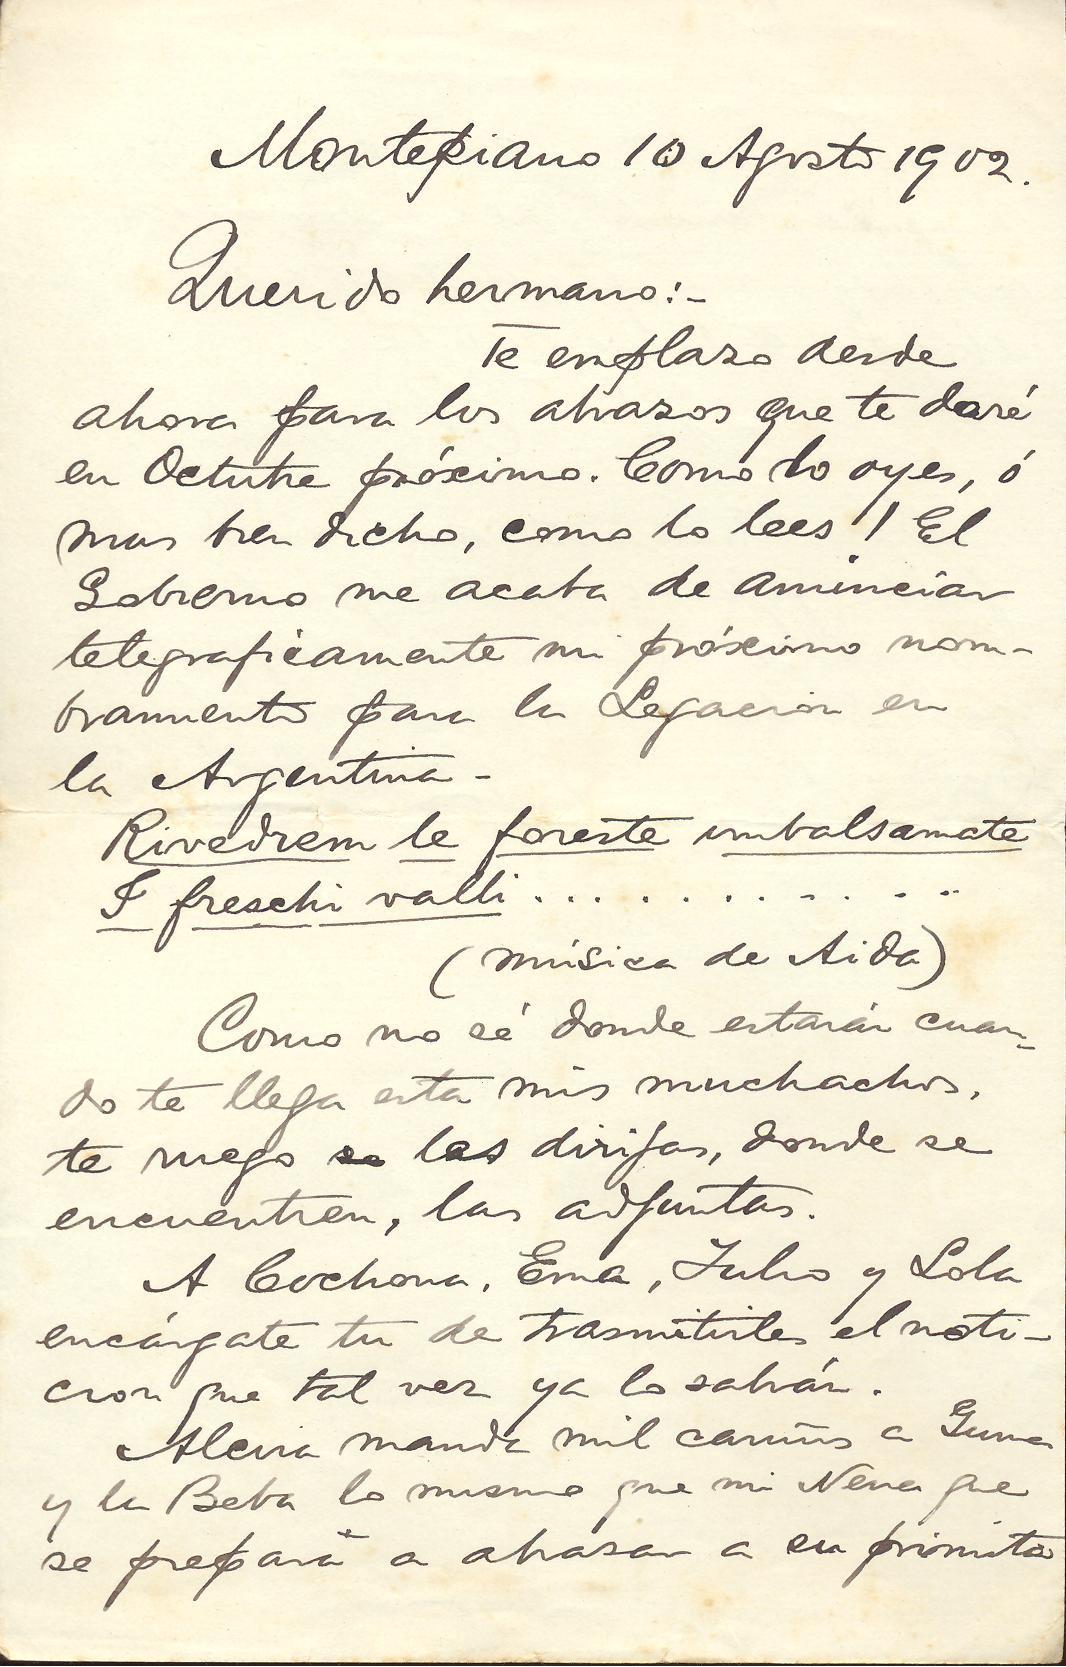 Montepiano 10 Agosto 1902.
Querido hermano:-
Te emplazo desde
ahora para los abrazos que te daré
en Octubre próximo. Como lo oyes, ó
mas bien dicho, como lo lees! El
Gobierno me acaba de anunciar
telegraficamente mi próximo nom-
bramiento para la Legacion en
la Argentina-
Rivedrem le foreste imbalsamate
I freschi valli............
(música de Aida)
Como no sé donde estarán cuan-
do te llega esta mis muchachos,
te ruego las dirijas, donde se
encuentren, las adjuntas.
A Cochona, Ema, Julio y Lola
encárgate tu de trasmitirles el noti-
cion que tal vez ya lo sabrán.
Alcira manda mil cariños a Guma
y la Beba lo mismo que mi Nena que
se prepara a abrazar a su primito